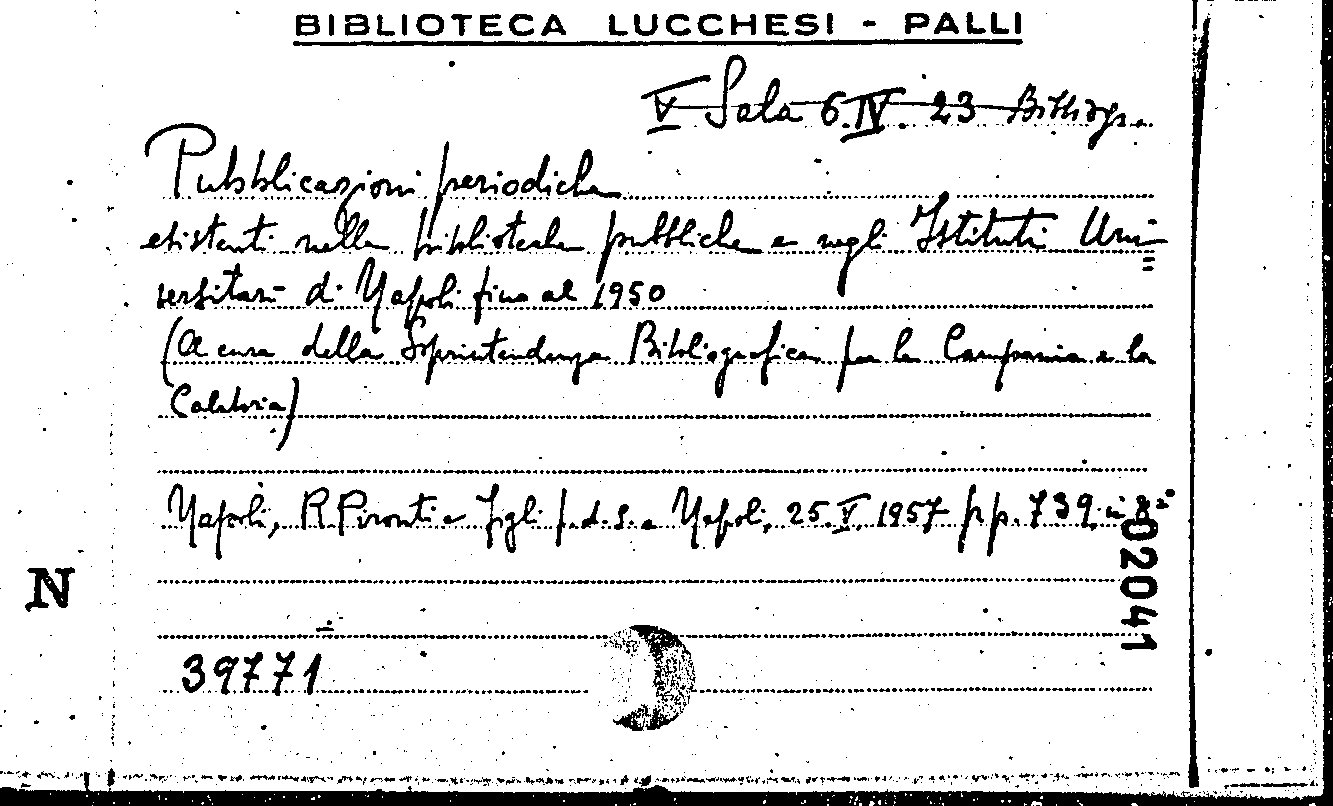 BIBLIOTECA LUCCHESI - PALLI
V Sala 6.IV. 23 Bibliogr.
Pubblicazioni periodiche
esistenti nelle biblioteche pubbliche e negli Istituti Uni=
versitari di Napoli fino al 1950
(A cura della Soprintendenza Bibliografica per la Campania e la
Calabria)
Napoli, R. Pironti e Figli s.d. e Napoli, 25.V. 1957 pp. 739, in 8°
02041
N
39771